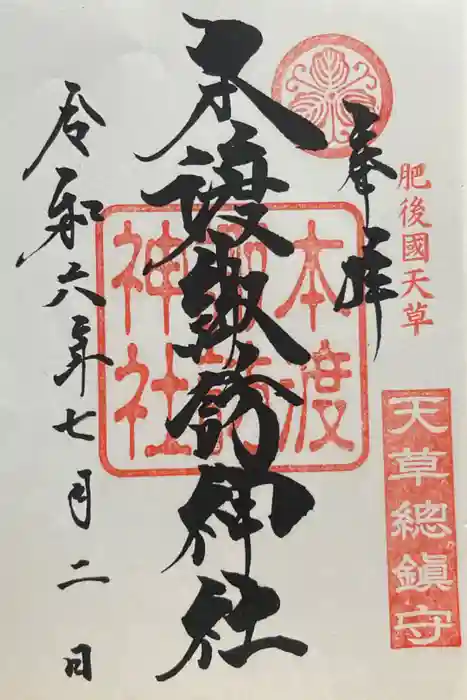 奉拝
肥後國天草
天草總鎮守
本渡諏訪神社
本渡諏訪神社
令和六年七月二日